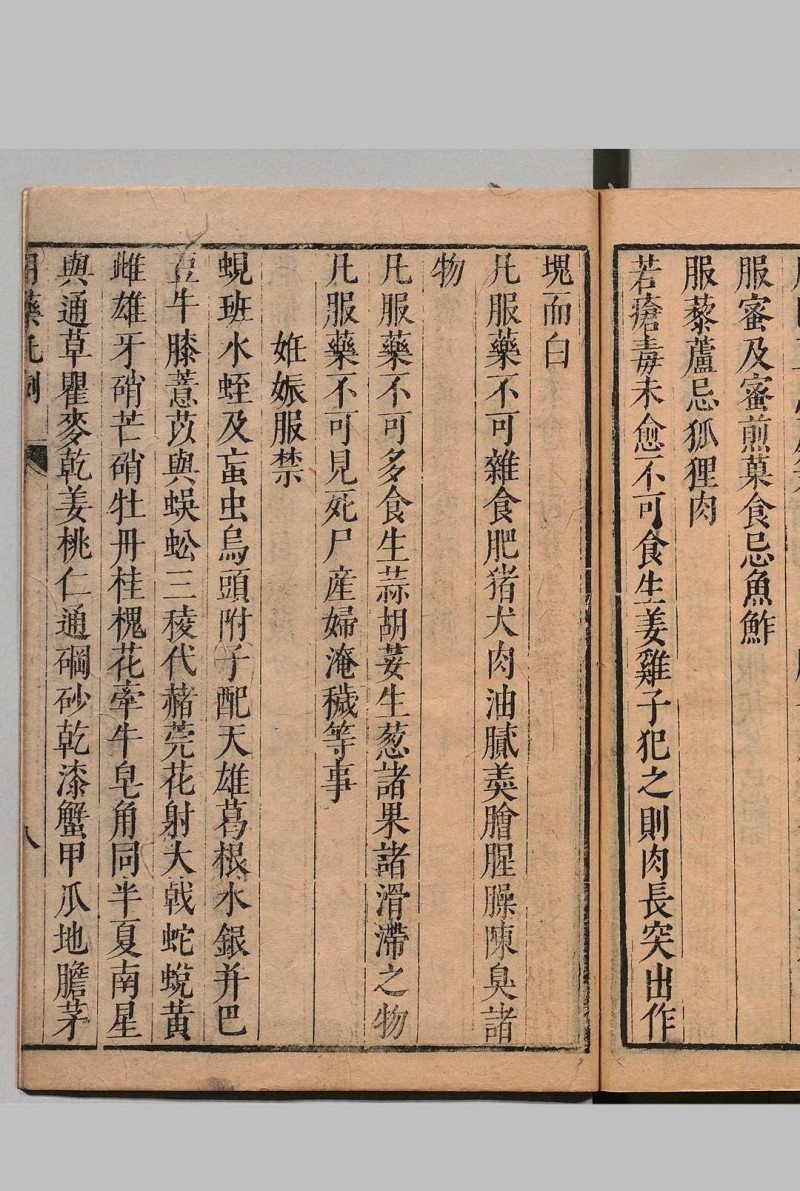 服蜜及蜜煎菓食忌魚鮓
服藜蘆忌狐狸肉
若瘡毒未愈不可食生姜雞子犯之則肉長突出作
塊而白
凡服藥不可雜食肥猪犬肉油膩羮膾腥臊陳臭諸
物
凡服藥不可多食生蒜胡荽生葱諸果諸滑滯之物
凡服藥不可見死尸産婦淹穢等事
妊娠服禁
蜆班水蛭及䖟虫烏頭附子配天雄葛根水銀并巴
豆牛膝薏苡與蜈蚣三稜代赭莞花射大戟蛇蛻黄
雌雄牙硝芒硝牡丹桂槐花牽牛皂角同半夏南星
與通草瞿麥乾姜桃仁通硇砂乾漆蟹甲爪地膽茅
用藥凡例
八